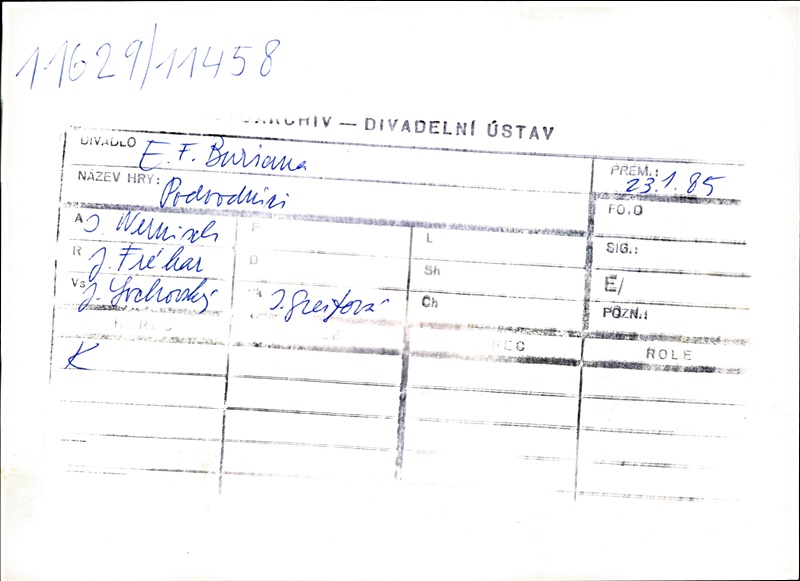 11629/11458
ARCHIV — DIVADELNÍ ÚSTAV
DIVADLO E. F. Buriana
PREM.: 23.1.85
NÁZEV HRY: Podvodníci
FOTO
A J. Wernisch
F
L
SIG.:
R J. Fréhar
D
Sh
E/
Vs J.
J. Greifová
Ch
POZN.:
ROLE
K